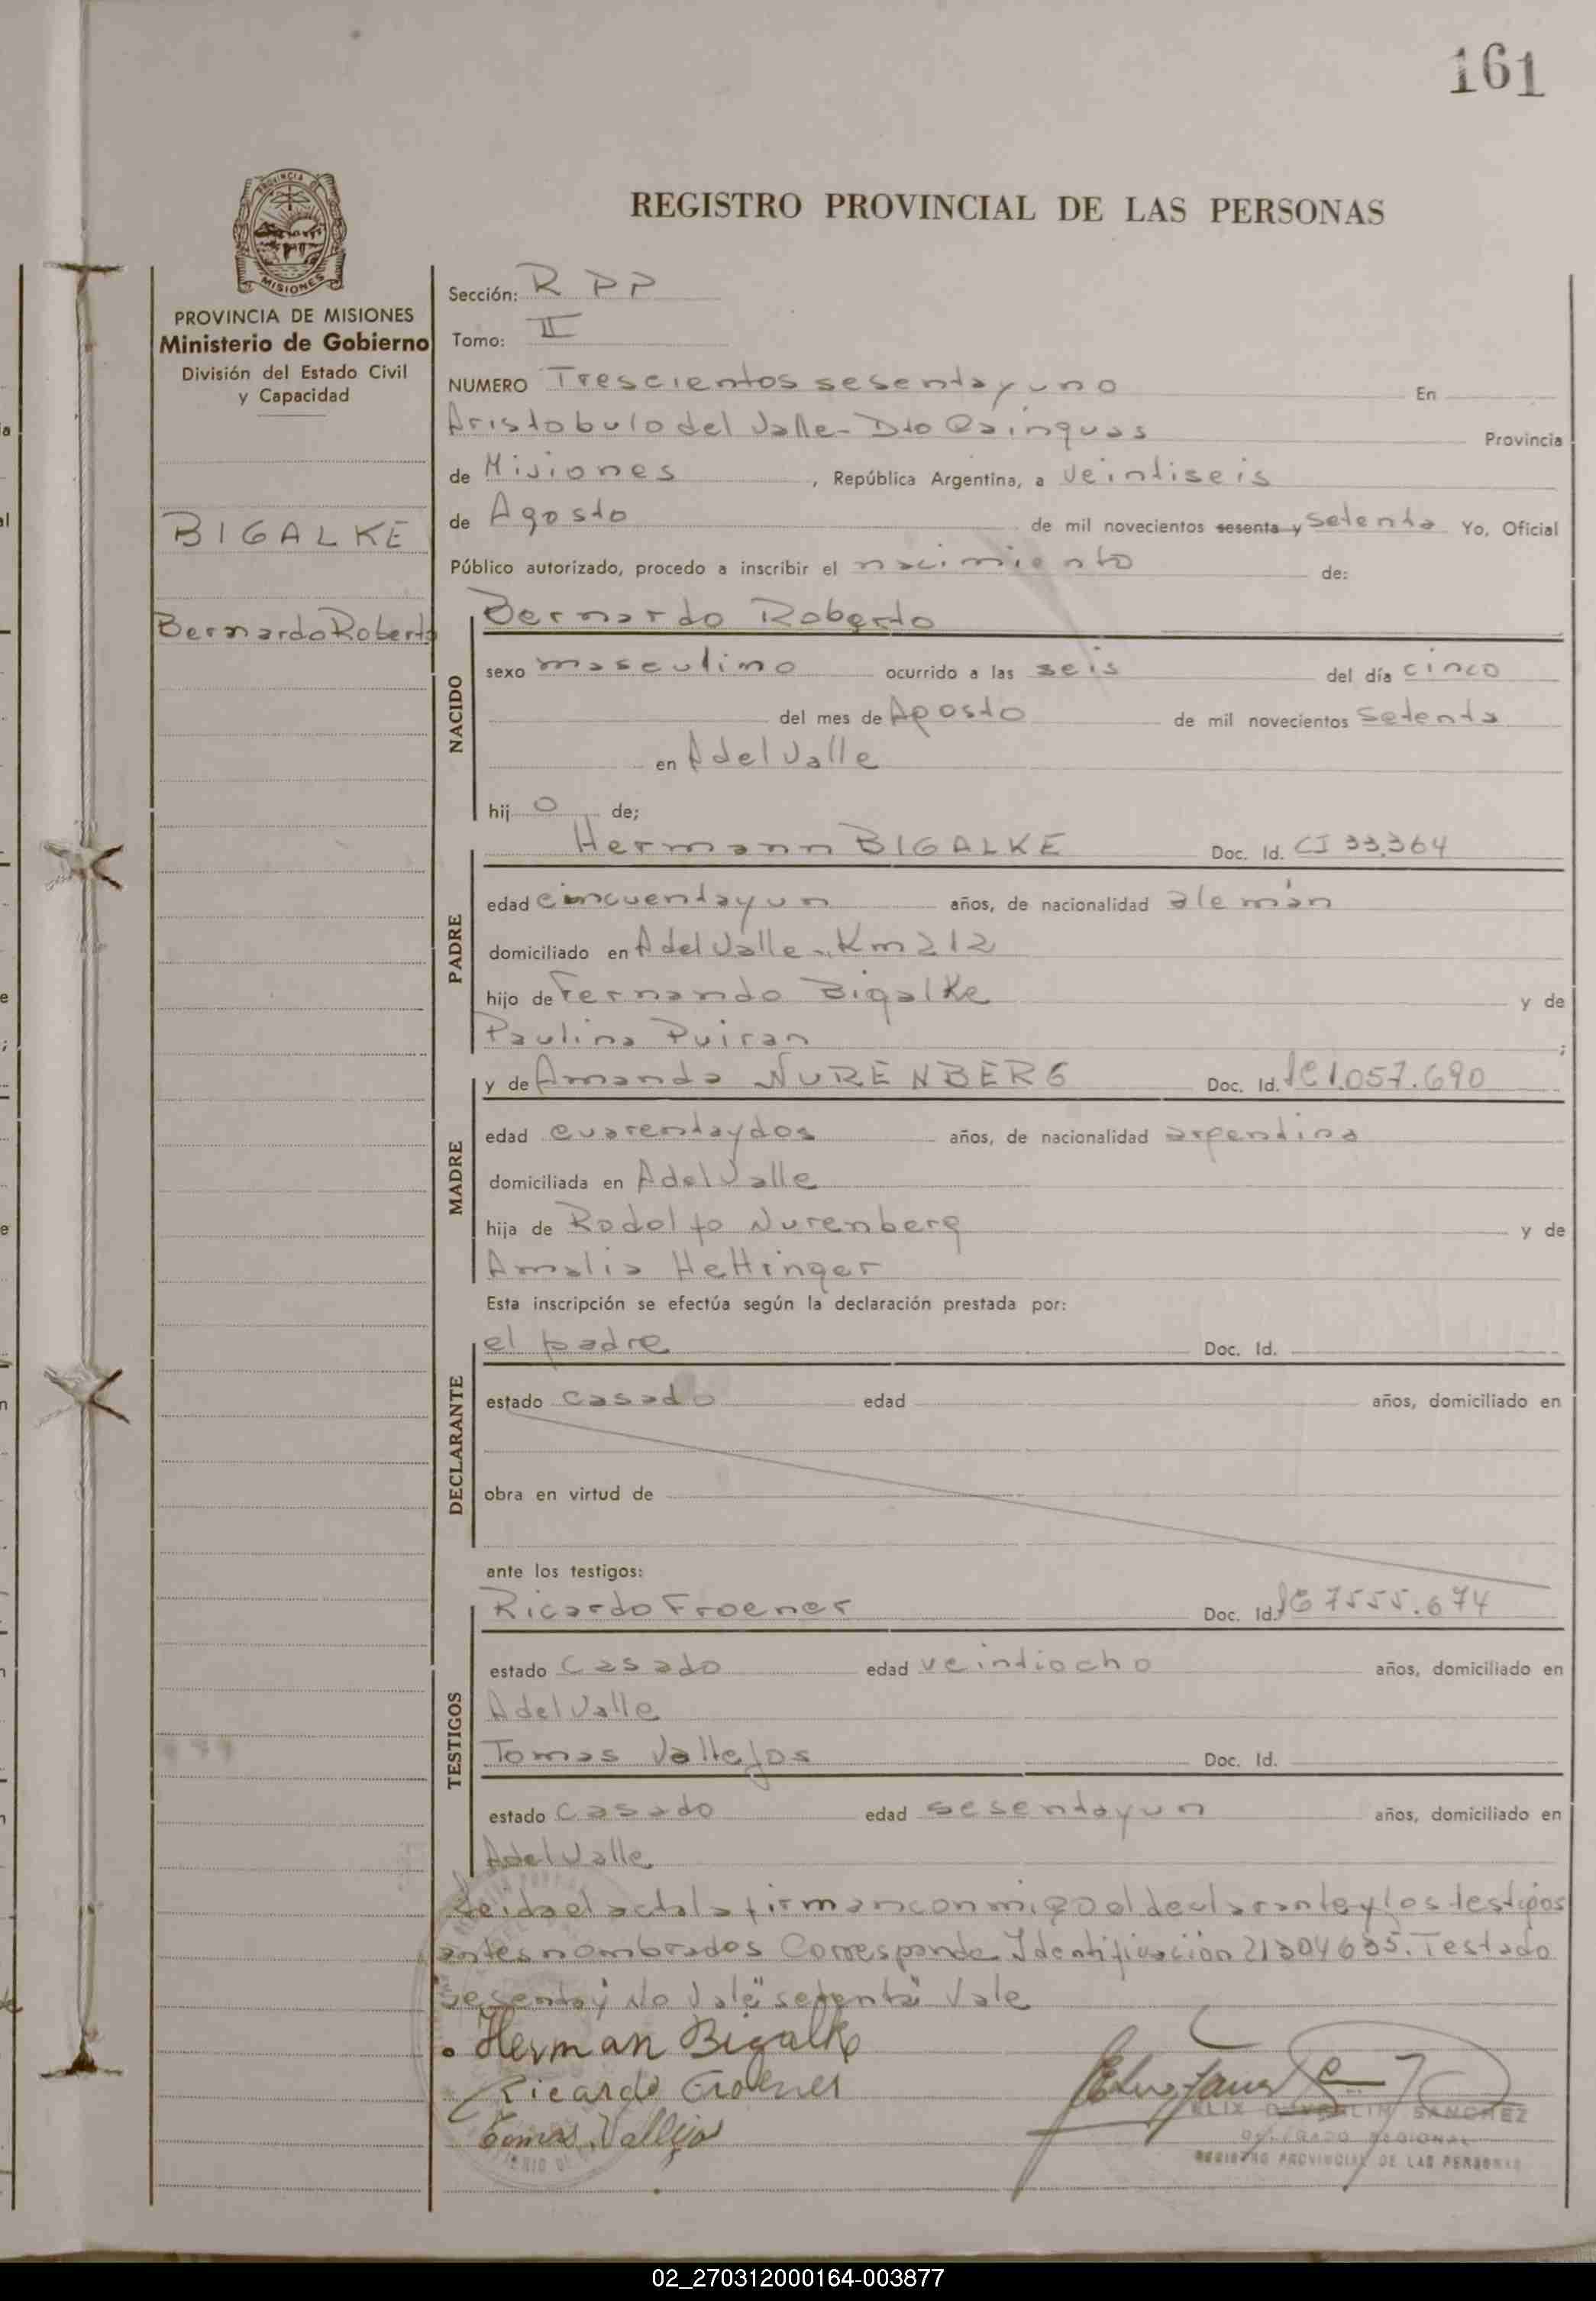 161
PROVINCIA DE
MISIONES
REGISTRO PROVINCIAL DE LAS PERSONAS
PROVINCIA DE MISIONES
Ministerio de Gobierno
División del Estado Civil
y Capacidad
BIGALKE
Bernardo Roberto
Sección: R P P
Tomo: II
NUMERO Trescientos sesentayuno En
Aristobulo del Valle - Dto Cainguas Provincia
de Misiones, República Argentina, a veintiseis
de Agosto de mil novecientos sesenta y setenta Yo, Oficial
Público autorizado, procedo a inscribir el nacimiento de:
NACIDO
Bernardo Roberto
sexo masculino ocurrido a las seis del día cinco
del mes de Agosto de mil novecientos setenta
en A del Valle
hij o de;
PADRE
Hermann BIGALKE Doc. Id. CI 33.364
edad cincuentayun años, de nacionalidad alemán
domiciliado en A del Valle - Km 212
hijo de Fernando Bigalke y de
Paulina Puiran ;
MADRE
y de Amanda NURENBERG Doc. Id. lc 1.057.690
edad cuarentaydos años, de nacionalidad argentina
domiciliada en A del Valle
hija de Rodolfo Nurenberg y de
Amalia Hettinger
Esta inscripción se efectúa según la declaración prestada por:
DECLARANTE
el padre Doc. Id.
estado casado edad años, domiciliado en
obra en virtud de
ante los testigos:
TESTIGOS
Ricardo Froener Doc. Id. le 7555.674
estado casado edad veintiocho años, domiciliado en
A del Valle
Tomas Vallejos Doc. Id.
estado casado edad sesentayun años, domiciliado en
A del Valle
Leida el acta la firman conmigo el declarante y los testigos
antes nombrados Corresponde Identificación 21304635. Testado
"sesenta y" No Vale "setenta" Vale
Herman Bigalke
Ricardo Froener
Tomas Vallejos
SANCHEZ
DELEGADO REGIONAL
REGISTRO PROVINCIAL DE LAS PERSONAS
02_270312000164-003877